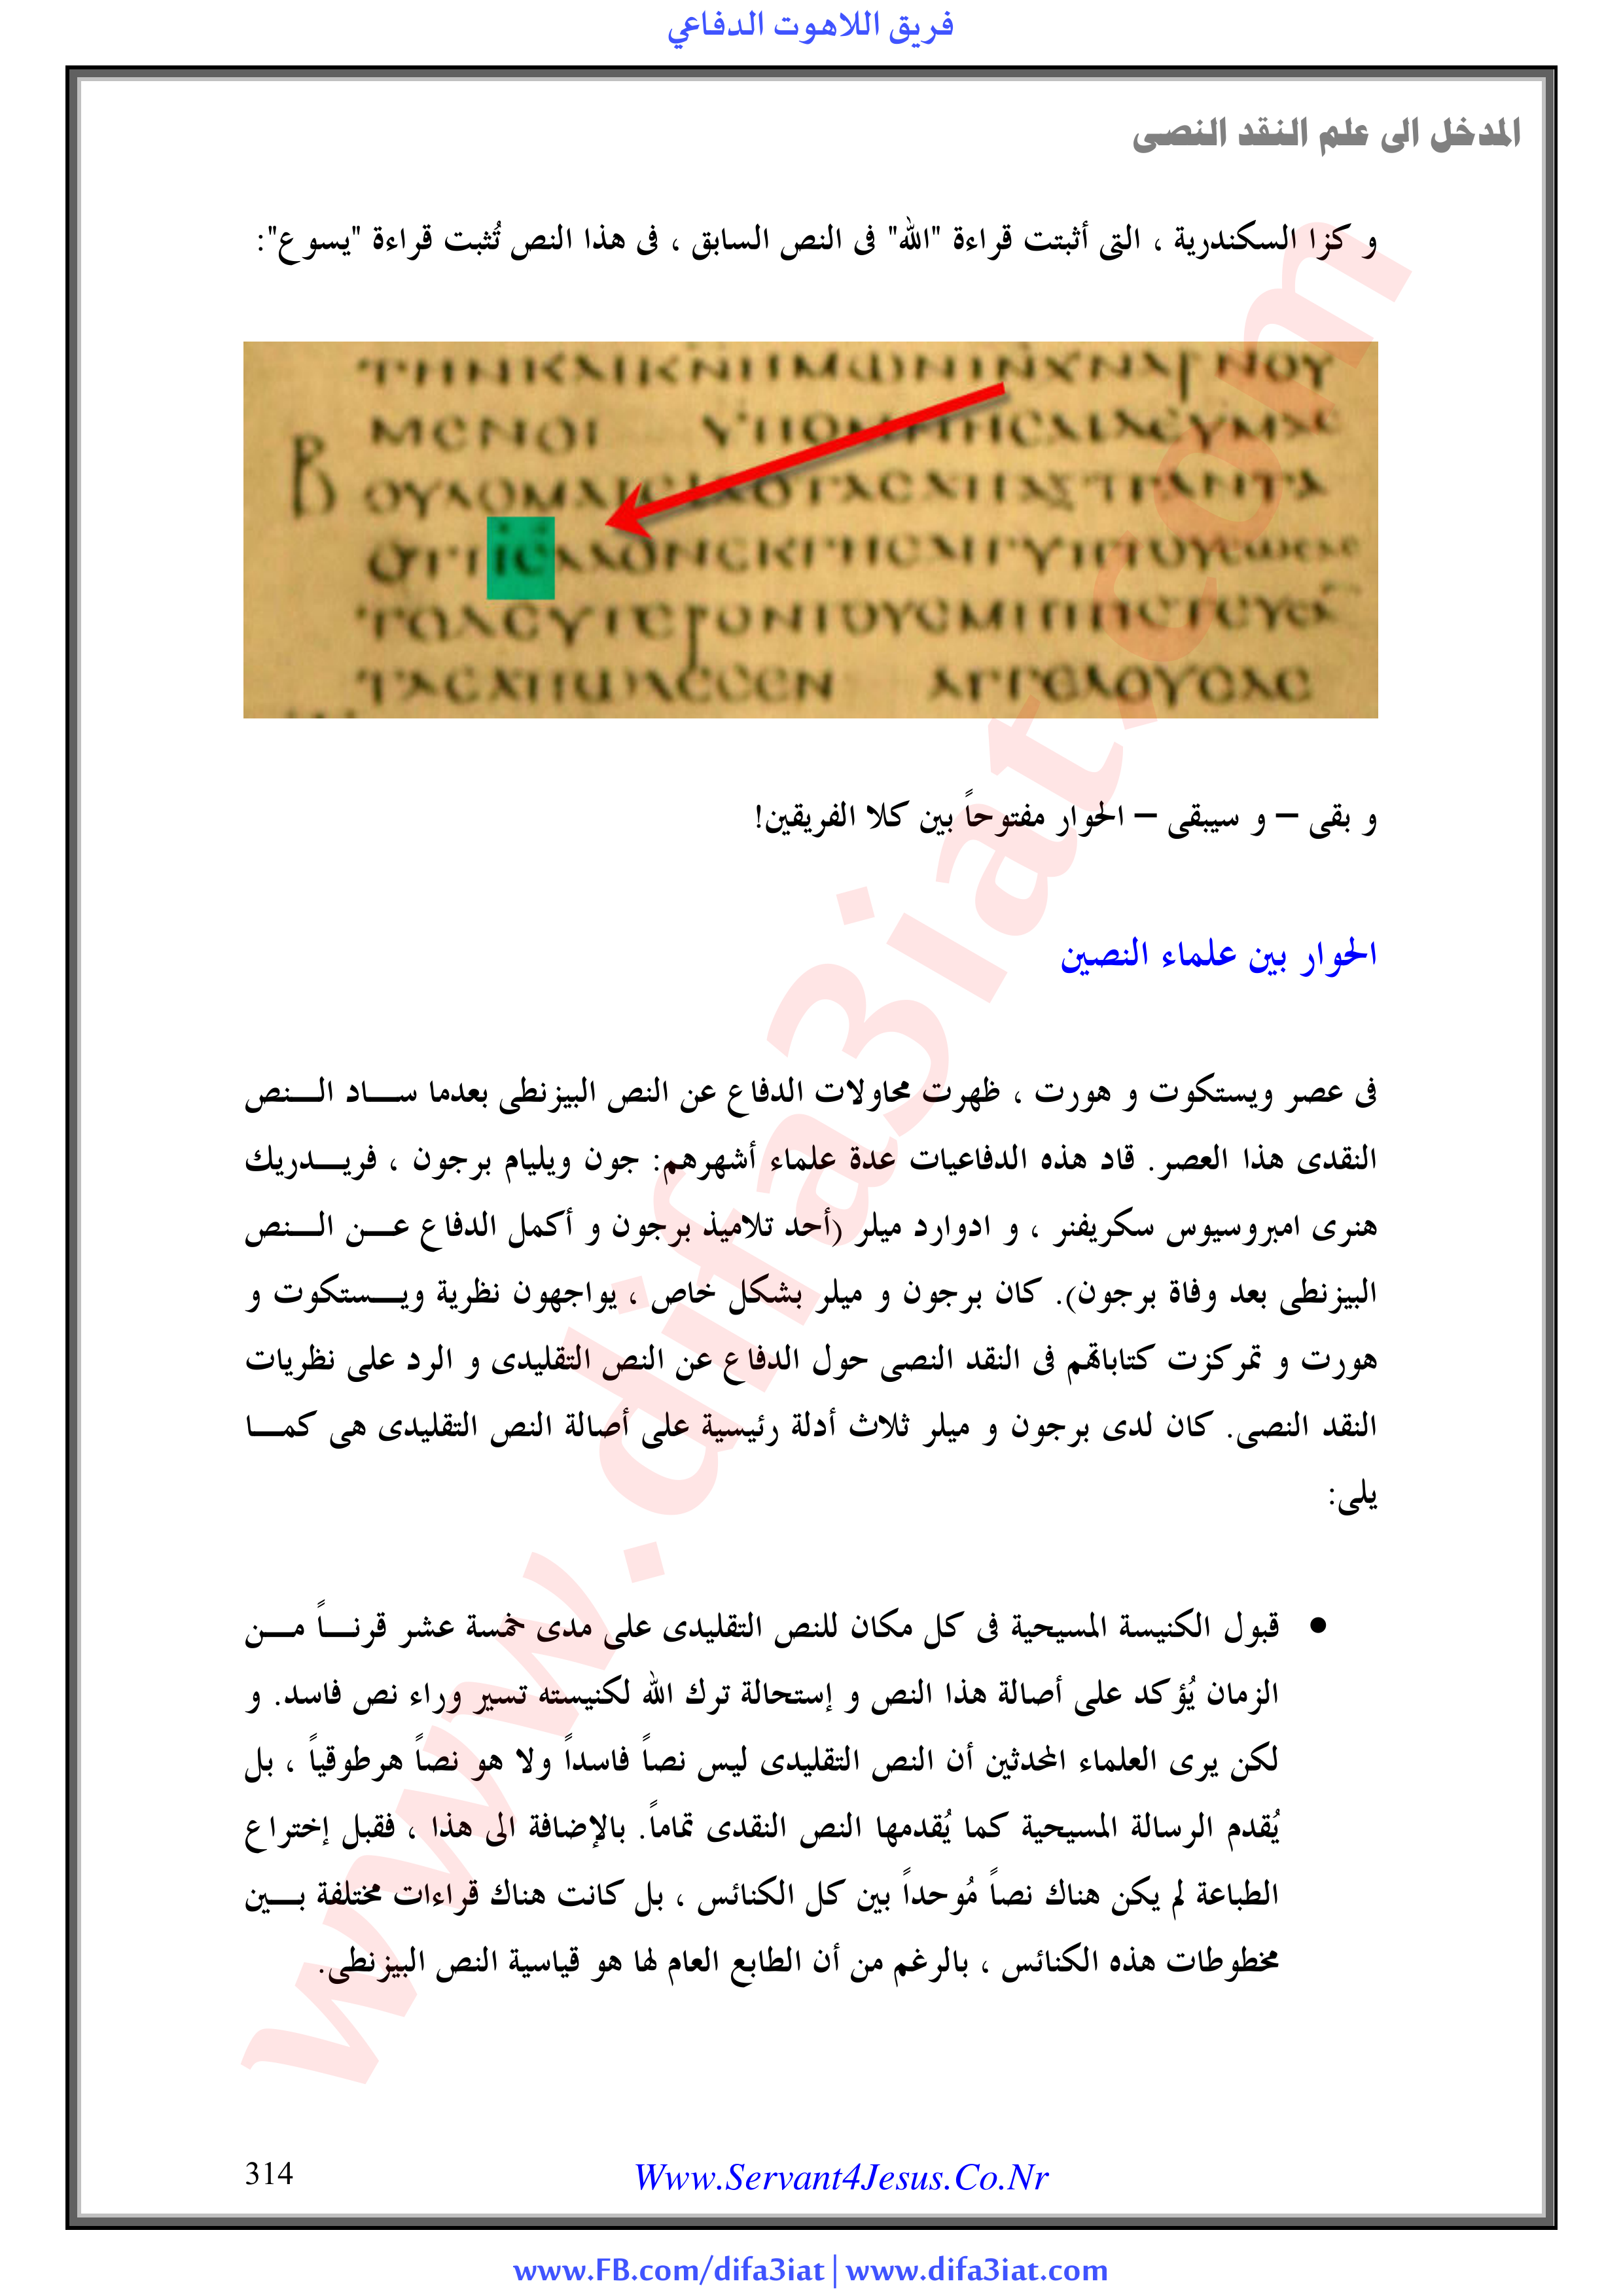 فريق اللاهوت الدفاعي
المدخل الى علم النقد النصى
و كزا السكندرية ، التى أثبتت قراءة "الله" فى النص السابق ، فى هذا النص تُثبت قراءة "يسوع":
ΜΕΝΟΙ
و بقى – و سيبقى – الحوار مفتوحاً بين كلا الفريقين!
الحوار بين علماء النصين
فى عصر ويستكوت و هورت ، ظهرت محاولات الدفاع عن النص البيزنطى بعدما ســاد الــنص
النقدى هذا العصر. قاد هذه الدفاعيات عدة علماء أشهرهم: جون ويليام برجون ، فريــدريك
هنرى امبروسيوس سكريفنر ، و ادوارد ميلر (أحد تلاميذ برجون و أكمل الدفاع عــن الــنص
البيزنطى بعد وفاة برجون). كان برجون و ميلر بشكل خاص ، يواجهون نظرية ويــستكوت و
هورت و تمركزت كتاباتهم فى النقد النصى حول الدفاع عن النص التقليدى و الرد على نظريات
النقد النصى. كان لدى برجون و ميلر ثلاث أدلة رئيسية على أصالة النص التقليدى هى كمــا
يلى:
• قبول الكنيسة المسيحية فى كل مكان للنص التقليدى على مدى خمسة عشر قرنــاً مــن
الزمان يُؤكد على أصالة هذا النص و إستحالة ترك الله لكنيسته تسير وراء نص فاسد. و
لكن يرى العلماء المحدثين أن النص التقليدى ليس نصاً فاسداً ولا هو نصاً هرطوقياً ، بل
يُقدم الرسالة المسيحية كما يُقدمها النص النقدى تماماً. بالإضافة الى هذا ، فقبل إختراع
الطباعة لم يكن هناك نصاً مُوحداً بين كل الكنائس ، بل كانت هناك قراءات مختلفة بــين
مخطوطات هذه الكنائس ، بالرغم من أن الطابع العام لها هو قياسية النص البيزنطى.
www.difa3iat.com
314
Www.Servant4Jesus.Co.Nr
www.FB.com/difa3iat | www.difa3iat.com